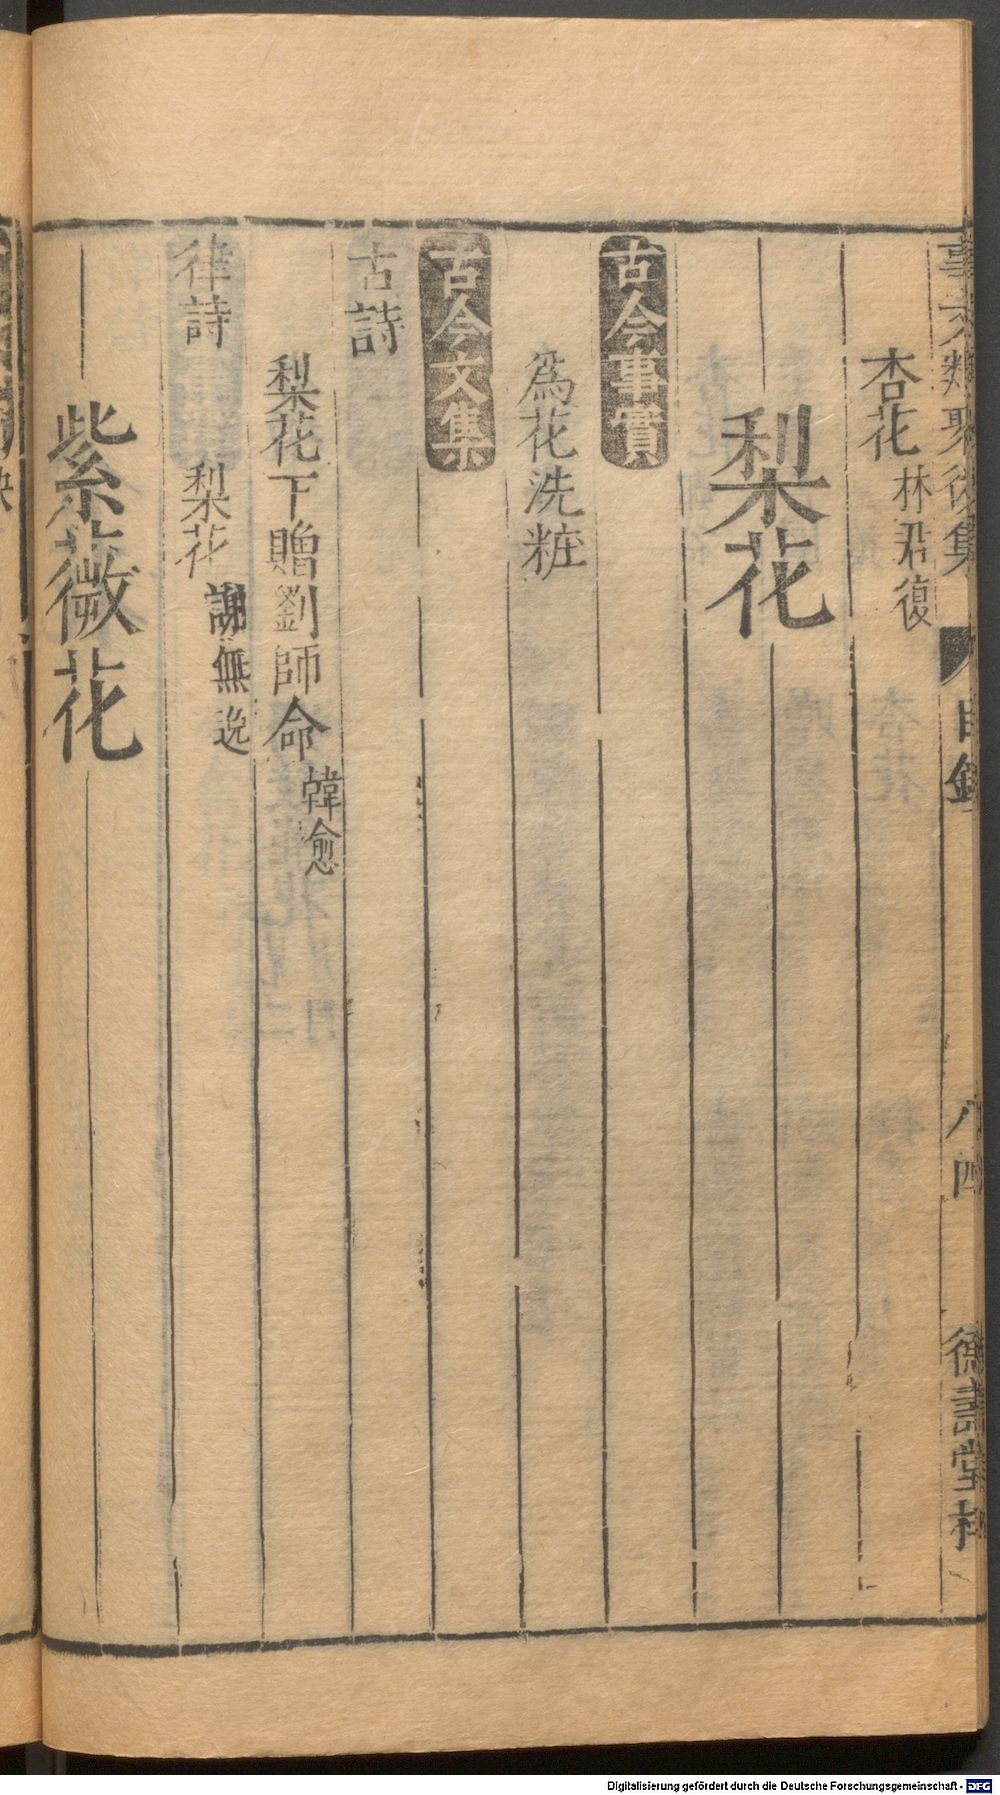 事文類聚後集 目錄 八四 德壽堂梓
杏花 林君復
梨花
古今事實
為花洗粧
古今文集
古詩
梨花下贈劉師命 韓愈
律詩
梨花 謝無逸
紫薇花
Digitalisierung gefördert durch die Deutsche Forschungsgemeinschaft - DFG